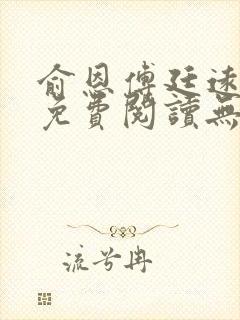 俞恩傅廷遠
免費閱讀無
流兮冉